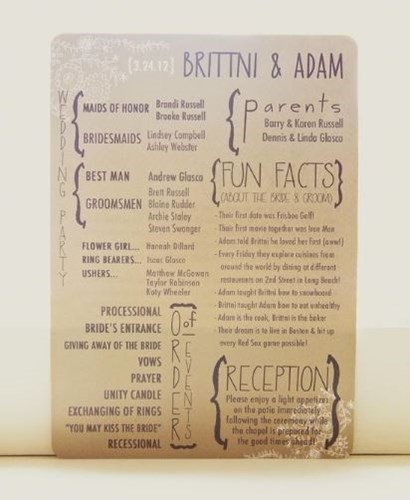 [3.24.12] BRITTNI & ADAM
WEDDING PARTY
MAIDS OF HONOR Brandi Russell
Brooke Russell
BRIDESMAIDS Lindsey Campbell
Ashley Webster
BEST MAN Andrew Glasco
GROOMSMEN Brett Russell
Blaine Rudder
Archie Staley
Steven Swanger
FLOWER GIRL... Hannah Dillard
RING BEARERS... Isaac Glasco
USHERS... Matthew McGowan
Taylor Robinson
Katy Wheeler
PROCESSIONAL
BRIDE'S ENTRANCE
GIVING AWAY OF THE BRIDE
VOWS
PRAYER
UNITY CANDLE
EXCHANGING OF RINGS
"YOU MAY KISS THE BRIDE"
RECESSIONAL
ORDER of EVENTS
parents
Barry & Karen Russell
Dennis & Linda Glasco
FUN FACTS
(ABOUT THE BRIDE & GROOM)
- Their first date was Frisbee Golf!
- Their first movie together was Iron Man
- Adam told Brittni he loved her first (aww!)
- Every Friday they explore cuisines from
around the world by dining at different
restaurants on 2nd Street in Long Beach!
- Adam taught Brittni how to snowboard
- Brittni taught Adam how to eat healthy
- Adam is the cook, Brittni is the baker
- Their dream is to live in Boston & hit up
every Red Sox game possible!
RECEPTION
Please enjoy a light appetizer
on the patio immediately
following the ceremony while
the chapel is prepared for
the good times ahead!